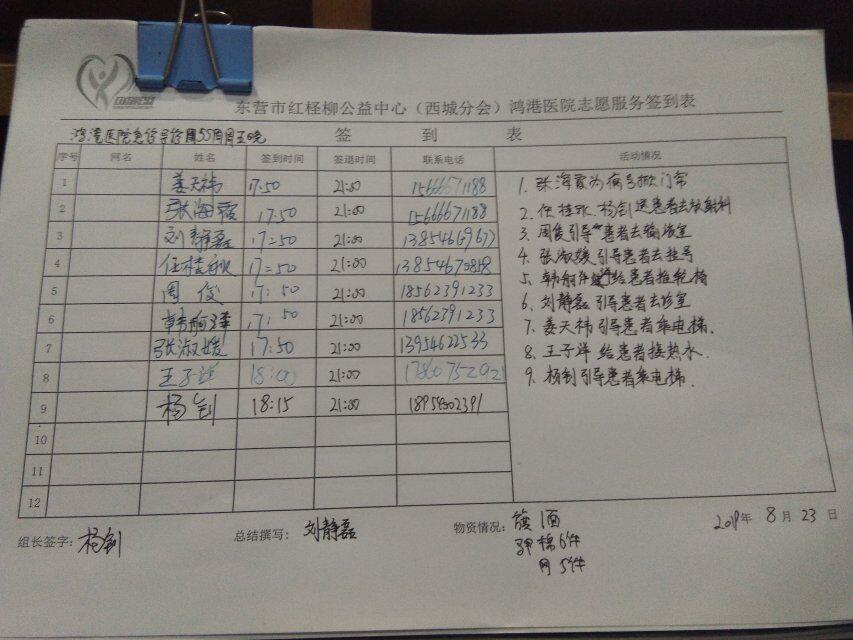 东营市红柽柳公益中心（西城分会）鸿港医院志愿服务签到表
鸿港医院急诊导诊周55周周五晚 签 到 表
序号 网名 姓名 签到时间 签退时间 联系电话 活动情况
1 姜天祎 17:50 21:00 15666671188
2 张海霞 17:50 21:00 15666671188
3 刘静磊 17:50 21:00
4 任桂秋 17:50 21:00
5 周俊 17:50 21:00 18562391233
6 韩 17:50 21:00 18562391233
7 张淑媛 17:50 21:00 13954622533
8 王子洋 18:00 21:00
9 杨剑 18:15 21:00
10
11
12
1. 张海霞为病号掀门帘
2. 任桂秋.杨剑送患者去放射科
3. 周俊引导患者去输液室
4. 张淑媛引导患者去挂号
5. 给患者推轮椅
6. 刘静磊引导患者去诊室
7. 姜天祎引导患者乘电梯.
8. 王子洋给患者接热水.
9. 杨剑引导患者乘电梯.
组长签字：杨剑 总结撰写： 刘静磊 物资情况： 2019年 8月 23日
棉6件
网5件